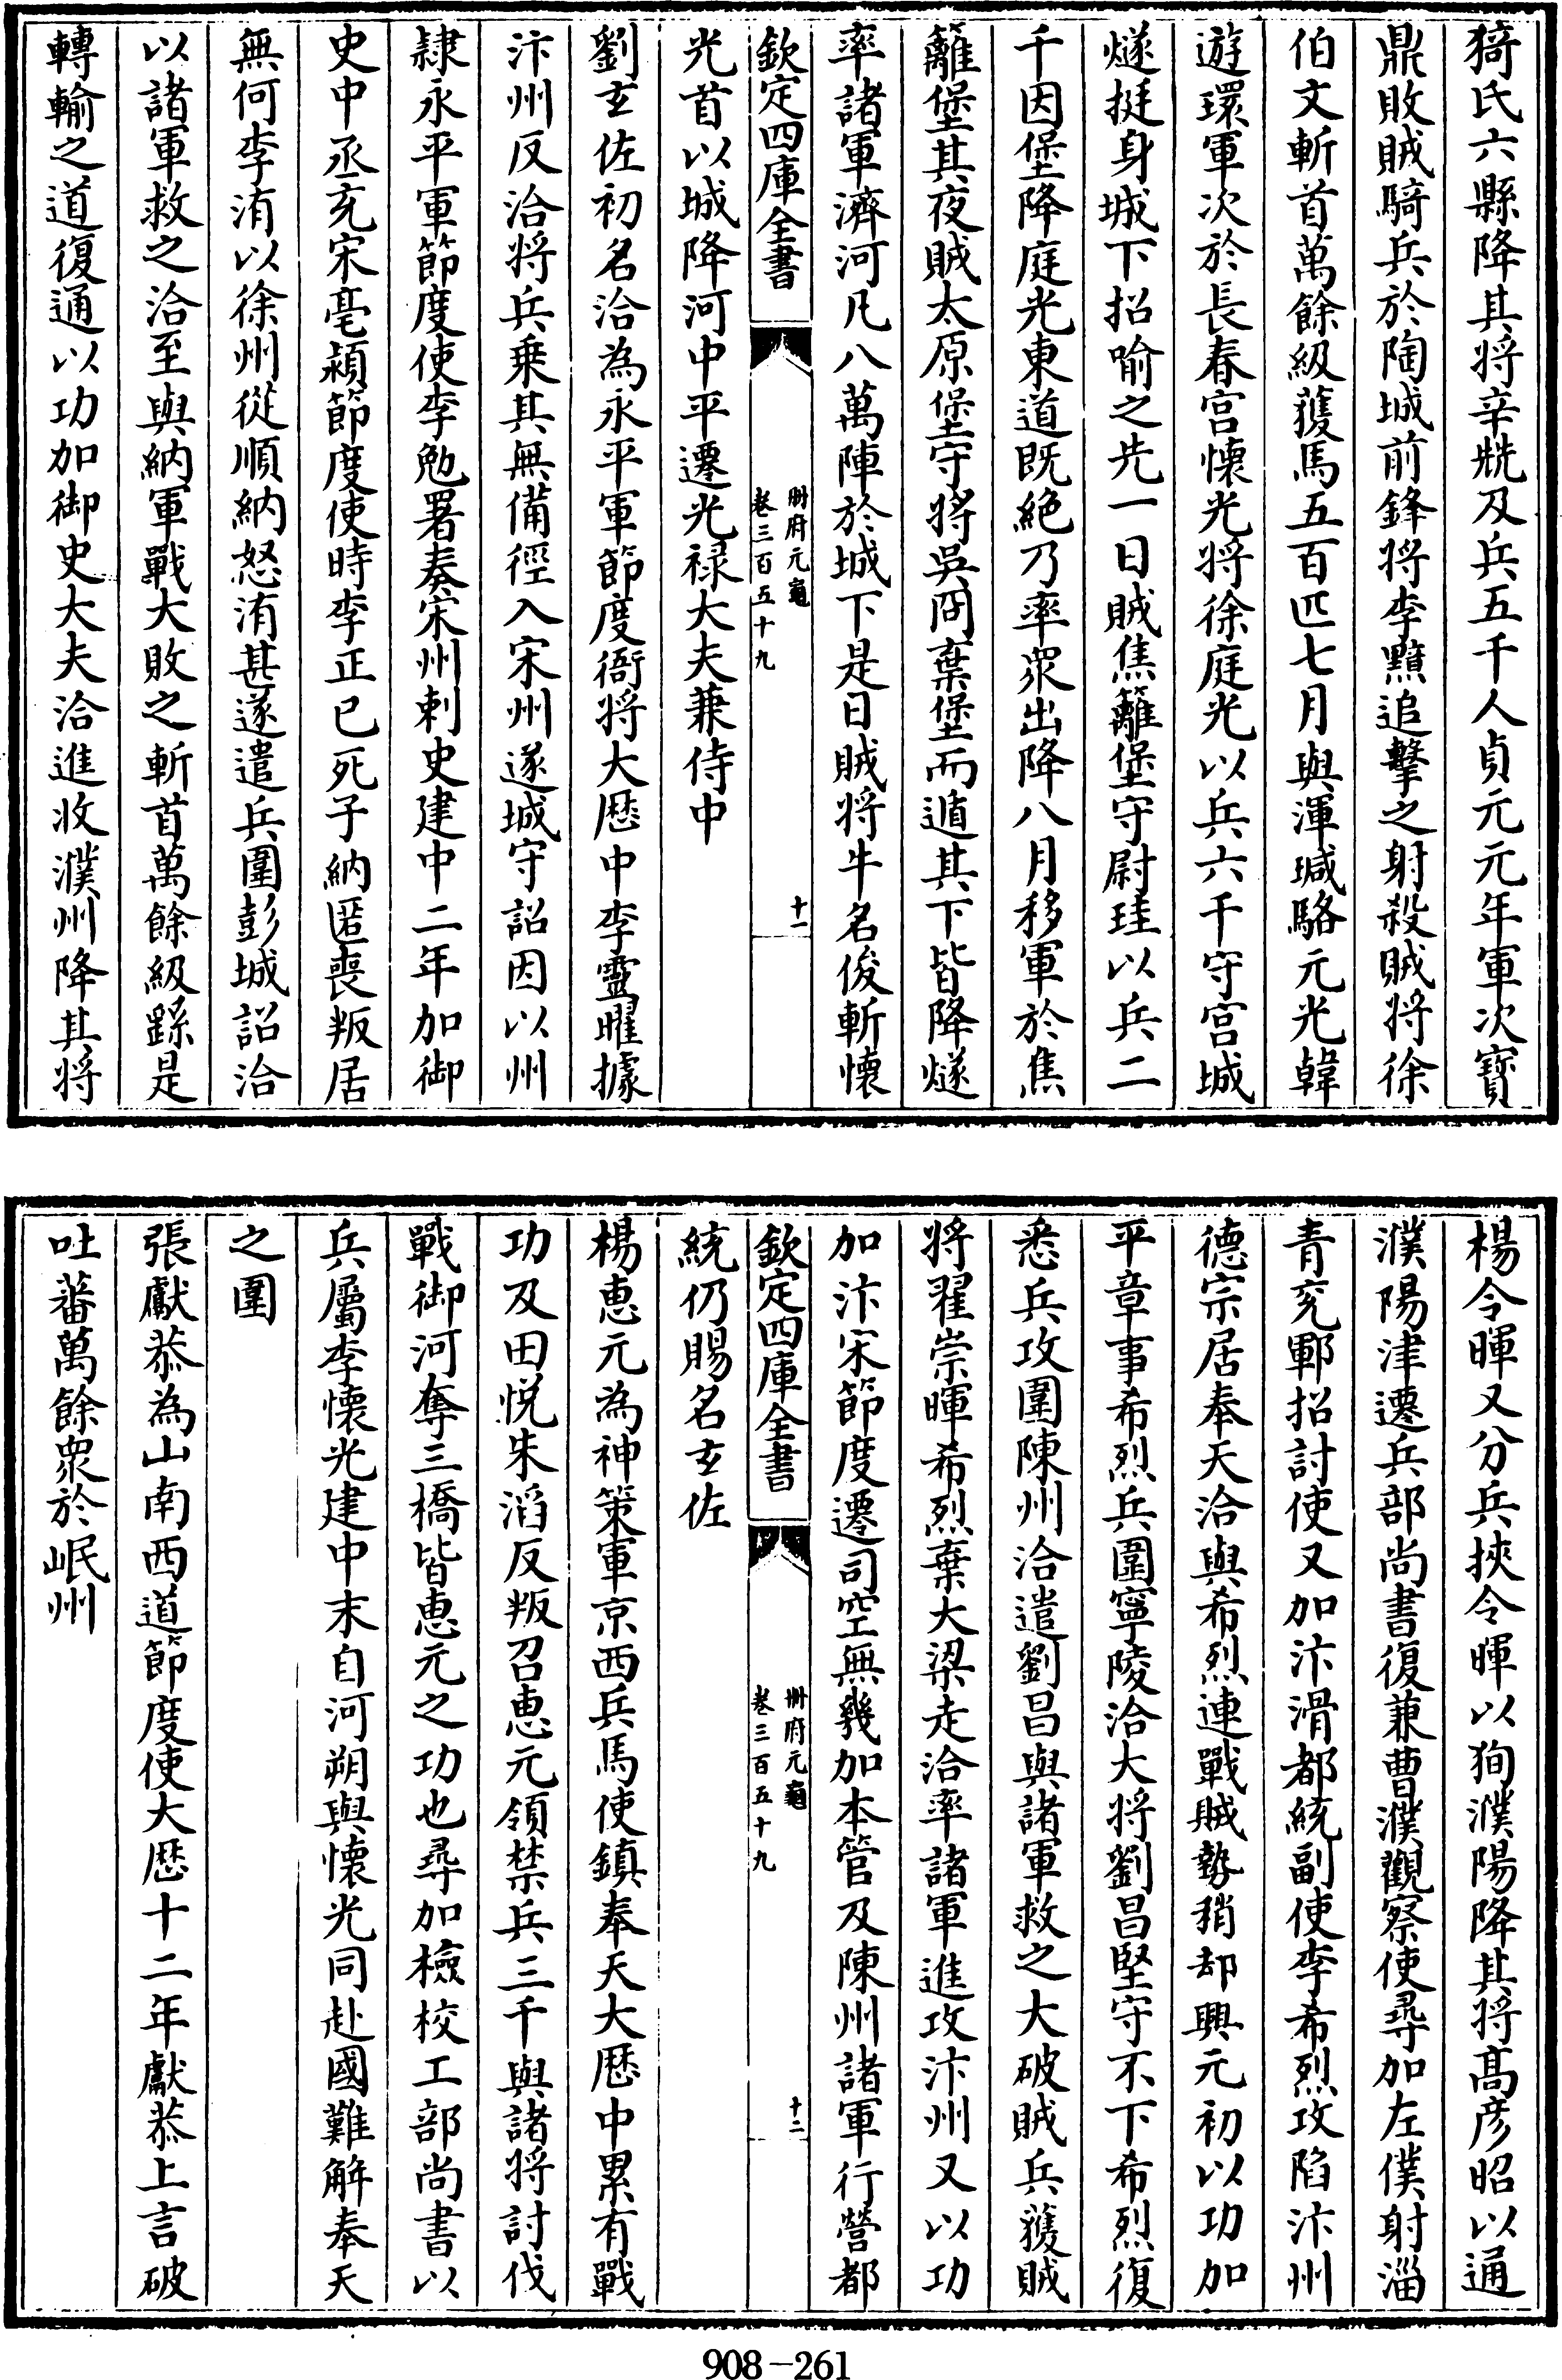 猗氏六縣降其将辛兟及兵五千人貞元元年軍次寳
鼎敗賊騎兵於陶城前鋒将李黯追擊之射殺賊将徐
伯文斬首萬餘級獲馬五百匹七月與渾瑊駱元光韓
遊環軍次於長春宫懷光将徐庭光以兵六千守宫城
燧挺身城下招喻之先一日賊焦籬堡守尉珪以兵二
千因堡降庭光東道既絶乃率衆出降八月移軍於焦
籬堡其夜賊太原堡守将吳冏棄堡而遁其下皆降燧
率諸軍濟河凡八萬陣於城下是日賊将牛名俊斬懷
欽定四庫全書
冊府元龜
卷三百五十九
十一
光首以城降河中平遷光禄大夫兼侍中
劉𤣥佐初名洽為永平軍節度衙将大歴中李靈曜據
汴州反洽将兵乗其無備徑入宋州遂城守詔因以州
隷永平軍節度使李勉署奏宋州刺史建中二年加御
史中丞兖宋亳潁節度使時李正已死子納匿喪叛居
無何李洧以徐州從順納怒洧甚遂遣兵圍彭城詔洽
以諸軍救之洽至與納軍戰大敗之斬首萬餘級繇是
轉輸之道復通以功加御史大夫洽進收濮州降其将
楊令暉又分兵挾令暉以狥濮陽降其将髙彦昭以通
濮陽津遷兵部尚書復兼曹濮觀察使尋加左僕射淄
青兖鄆招討使又加汴滑都統副使李希烈攻陷汴州
德宗居奉天洽與希烈連戰賊勢稍却興元初以功加
平章事希烈兵圍寧陵洽大将劉昌堅守不下希烈復
悉兵攻圍陳州洽遣劉昌與諸軍救之大破賊兵獲賊
将翟崇暉希烈棄大梁走洽率諸軍進攻汴州又以功
加汴宋節度遷司空無幾加本管及陳州諸軍行營都
欽定四庫全書
冊府元龜
卷三百五十九
十二
統仍賜名𤣥佐
楊惠元為神策軍京西兵馬使鎮奉天大歴中累有戰
功及田悦朱滔反叛召惠元領禁兵三千與諸将討伐
戰御河奪三橋皆惠元之功也尋加檢校工部尚書以
兵屬李懷光建中末自河朔與懷光同赴國難解奉天
之圍
張獻恭為山南西道節度使大歴十二年獻恭上言破
吐蕃萬餘衆於岷州
908-261